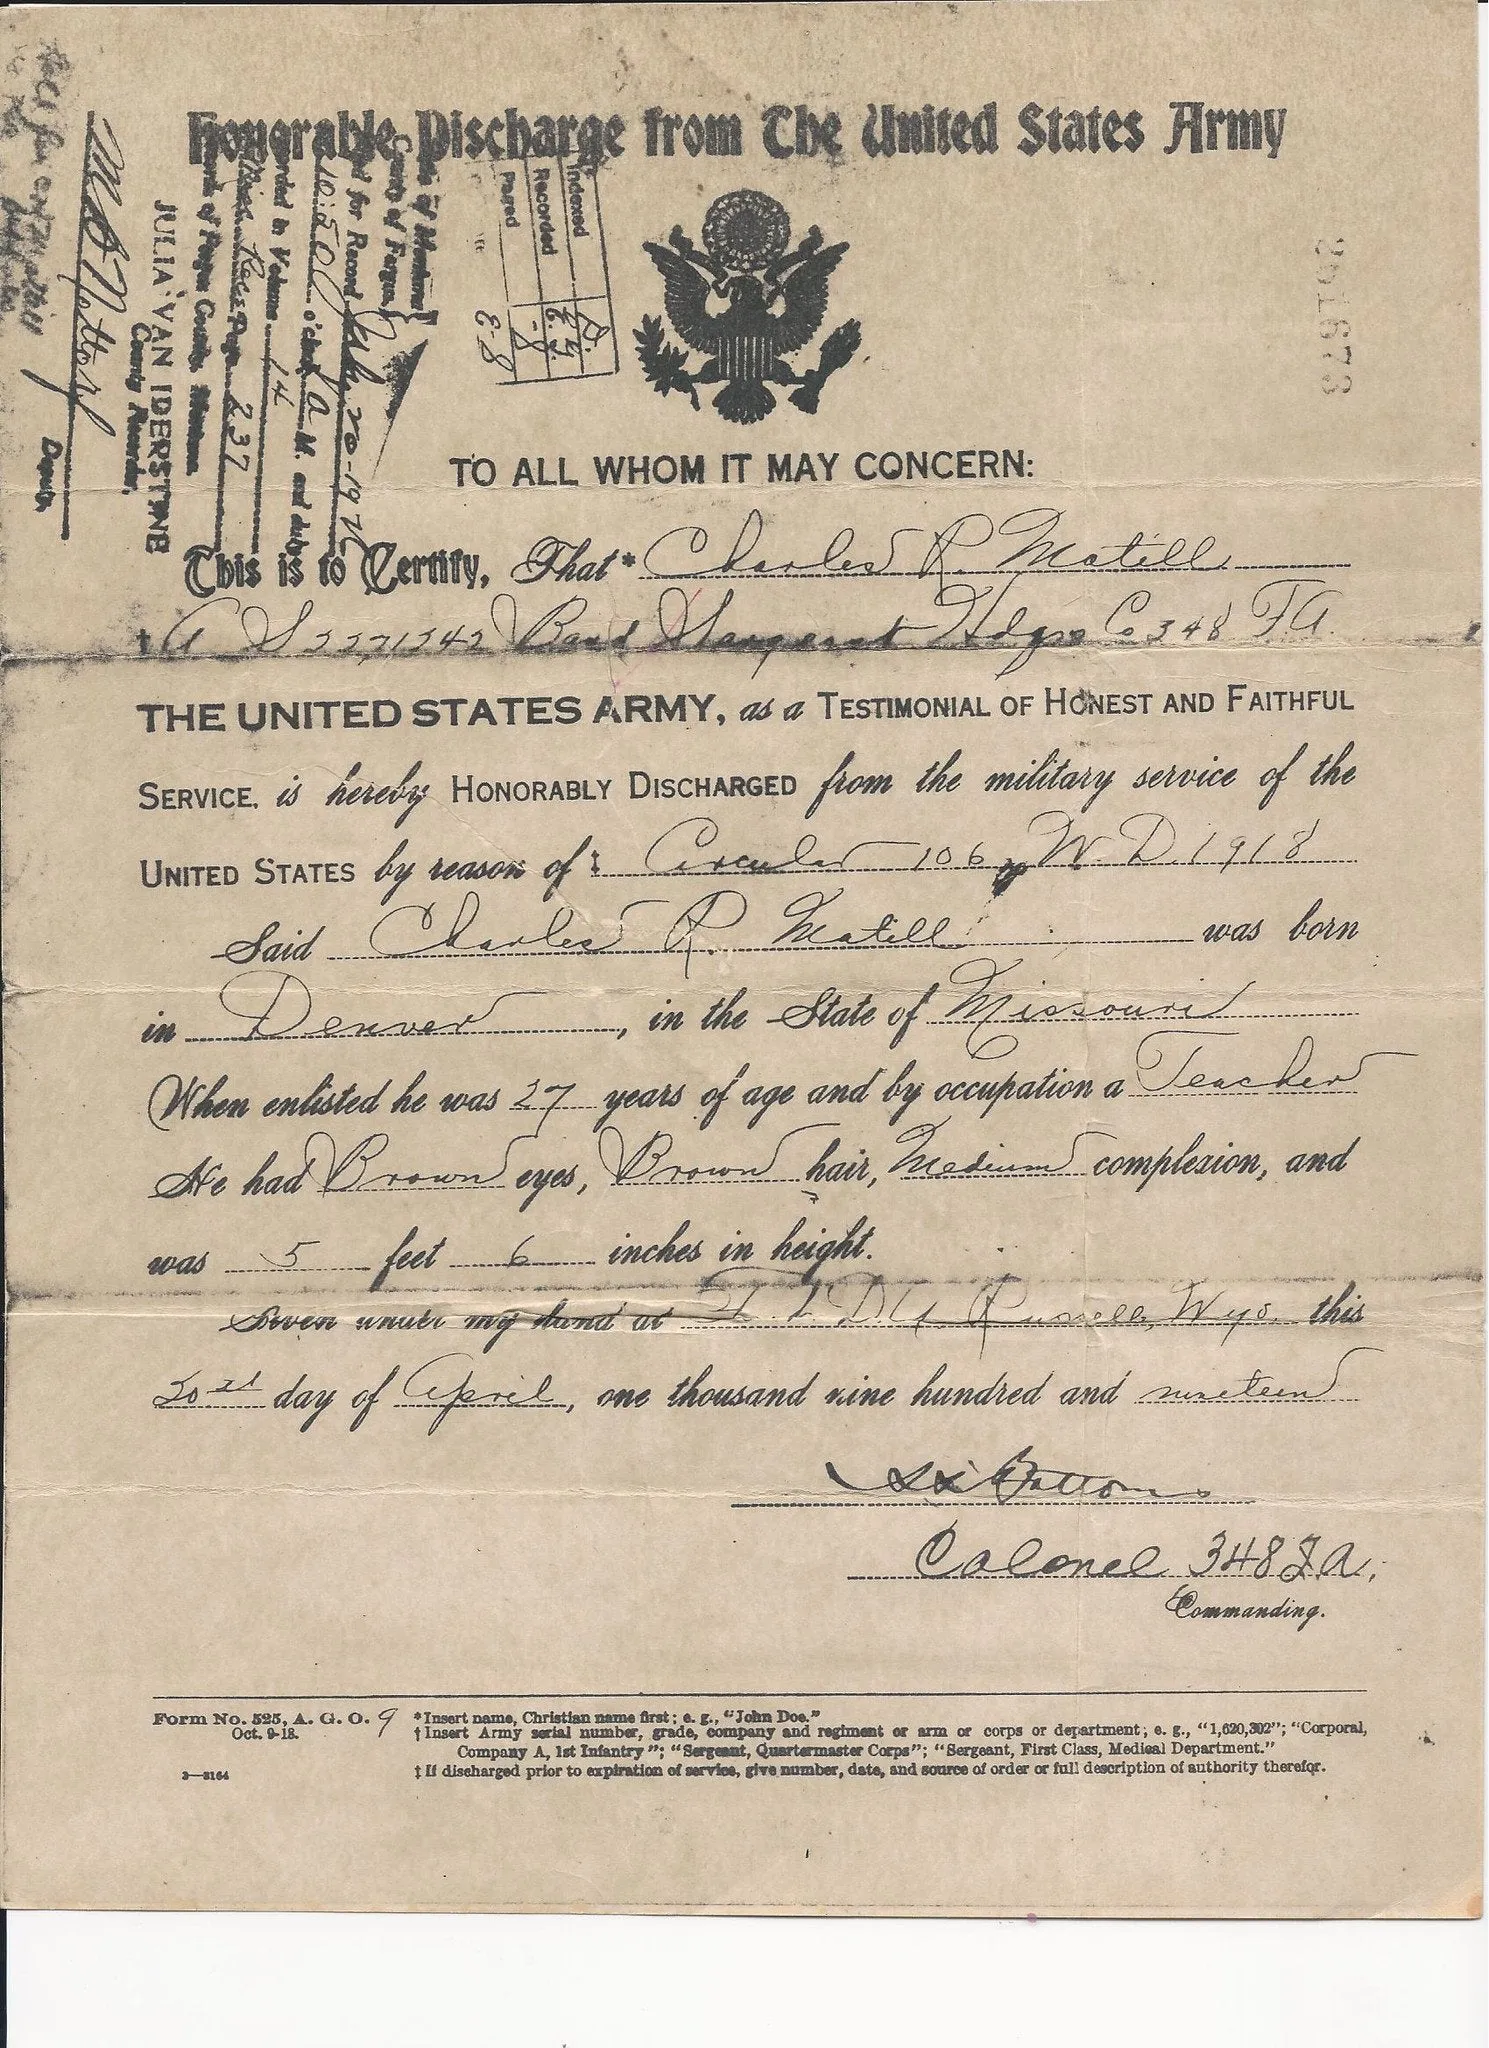 Honorable Discharge from The United States Army
State of Montana
County of Fergus,
for Record
10:50 o'clock A M. and duly
Recorded in Volume 14
Page 237
Records of Fergus County, Montana
JULIA VAN IDERSTINE
County Recorder,
Deputy
Indexed
Recorded
Paged
TO ALL WHOM IT MAY CONCERN:
This is to Certify, That* Charles R. Matill
† Band Sergeant Hdqs Co 348 F.A.
THE UNITED STATES ARMY, as a TESTIMONIAL OF HONEST AND FAITHFUL
SERVICE, is hereby HONORABLY DISCHARGED from the military service of the
UNITED STATES by reason of ‡ Circular 106 W.D. 1918
Said Charles R. Matill was born
in Denver, in the State of Missouri
When enlisted he was 27 years of age and by occupation a Teacher
He had Brown eyes, Brown hair, Medium complexion, and
was 5 feet 6 inches in height.
Given under my hand at Ft. D.A. Russell, Wyo. this
day of April, one thousand nine hundred and nineteen
Colonel 348 F.A.
Commanding.
Form No. 525, A. G. O. 9
Oct. 9-18.
3—3164
*Insert name, Christian name first; e. g., "John Doe."
†Insert Army serial number, grade, company and regiment or arm or corps or department; e. g., "1,620,302"; "Corporal,
Company A, 1st Infantry"; "Sergeant, Quartermaster Corps"; "Sergeant, First Class, Medical Department."
‡If discharged prior to expiration of service, give number, date, and source of order or full description of authority therefor.